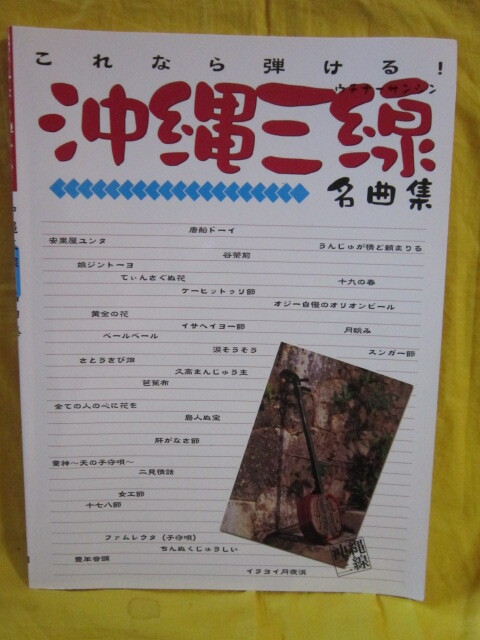 これなら弾ける!
ウチナーサンシン
沖縄三線
名曲集
唐船ドーイ
安里屋ユンタ
うんじゅが情ど頼まりる
谷茶前
娘ジントーヨ
てぃんさぐぬ花
十九の春
ケーヒットゥリ節
オジー自慢のオリオンビール
黄金の花
イサヘイヨー節
月眺み
ベールベール
涙そうそう
スンガー節
さとうきび畑
久高まんじゅう主
芭蕉布
全ての人の心に花を
島人ぬ宝
肝がなさ節
童神～天の子守唄～
二見情話
女工節
十七八節
ファムレウタ(子守唄)
ちんぬくじゅうしい
豊年音頭
イラヨイ月夜浜
沖縄
三線